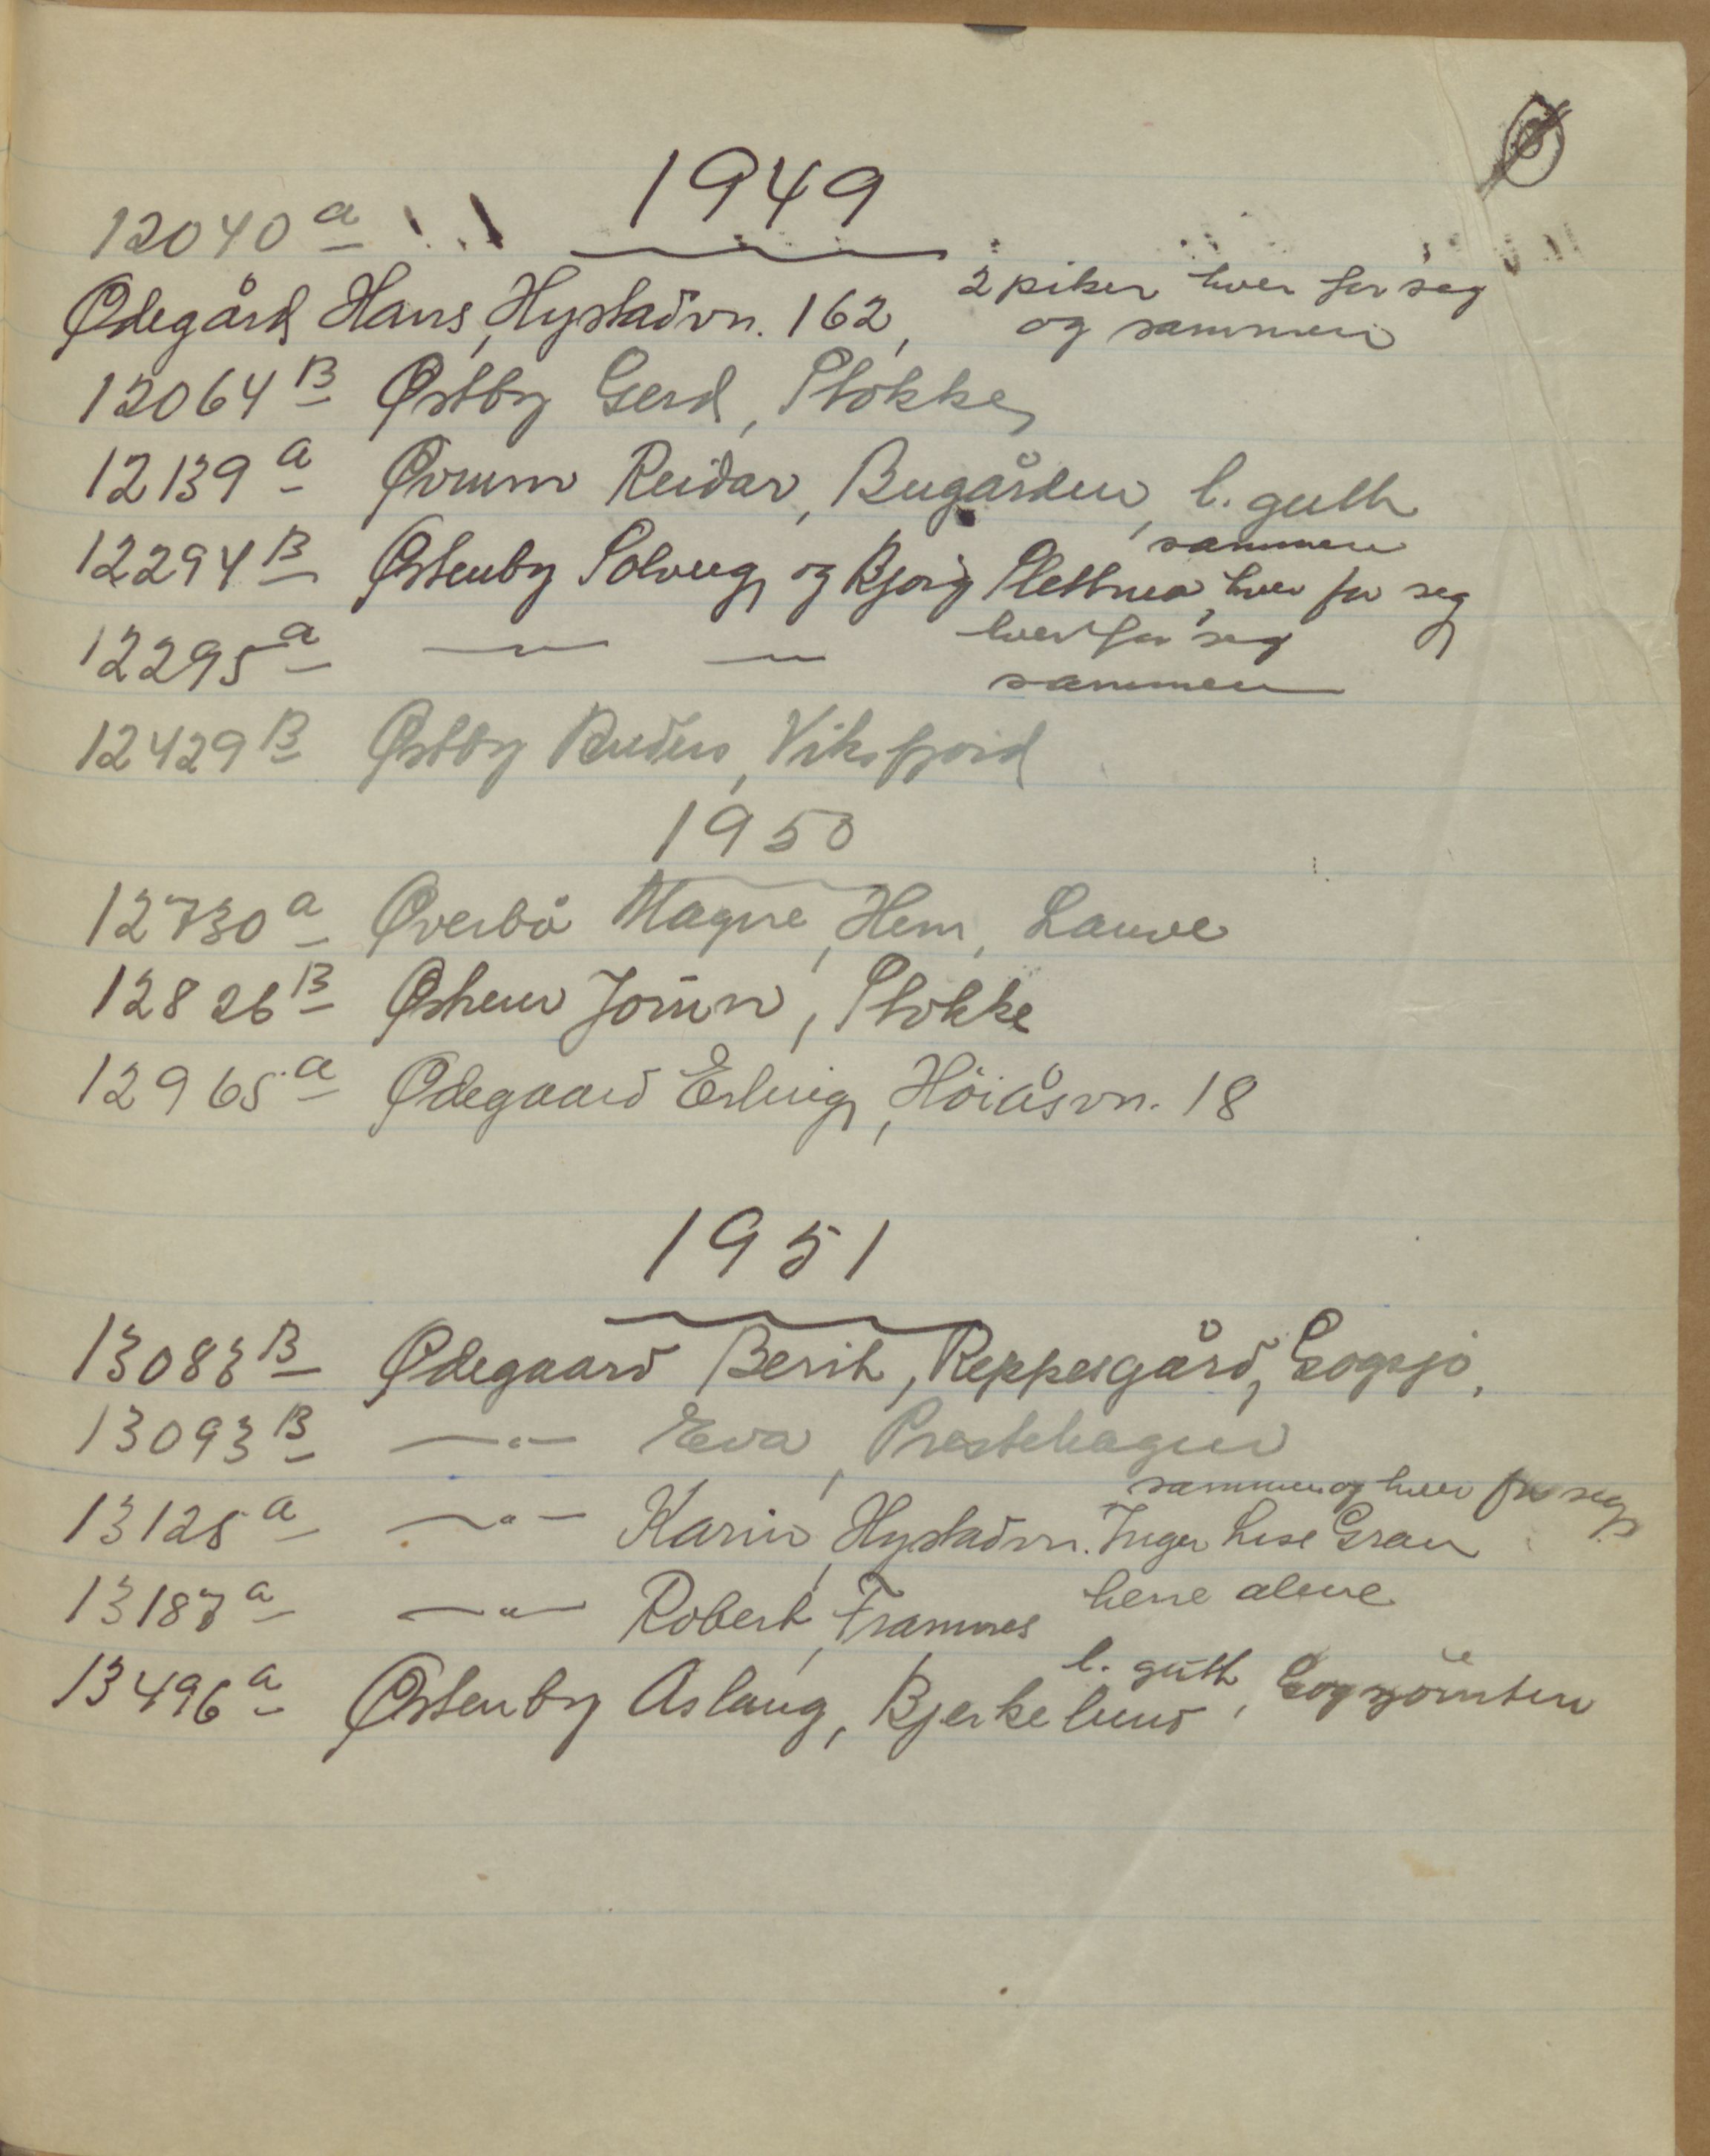 1949
12040 a
Ødegård Hans, Hystadvn. 162, 2 piker hver for seg
og sammen
12064 B Østby Gerd, Stokke
12139 a Øvrum Reidar, Bugården, l. gutt
sammen
12294 B Østenby Solveig og Bjørg Slettnes, hver for seg
12295 a — — hver for seg
sammen
12429 B Østby, Viksfjord
1950
12730 a Øverbö Magne, Hem, Lauve
12826 B Jorun, Stokke
12965 a Ødegaard Erling, Höiåsvn. 18
1951
13083 B Ødegaard Berit, Reppesgård, Gogsjö,
13093 B —"— Eva, Prestehagen
sammen og hver for seg
13125 a —"— Karin, Hystadvn. Inger Lise Gran
13187 a —"— Robert, Framnes herre alene
l. gutt
13496 a Østenby Aslaug, Bjerkelund,